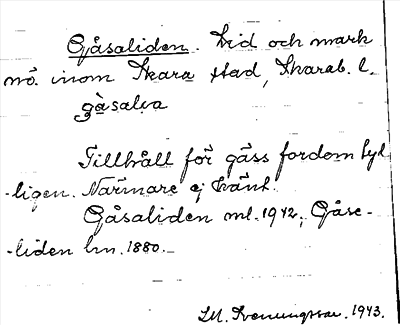 Gåsaliden. Lid och mark
nö. inom Skara stad, Skarab. l.
gàsalıa
Tillhåll för gäss fordom tyd-
-ligen. Närmare ej känt.
Gåsaliden ml. 1942; Gåse-
-liden lm. 1880.
1943.